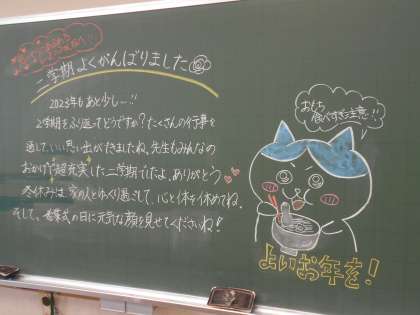 二学期よくがんばりました
2023年もあと少し…!!
2学期をふり返ってどうですか?たくさんの行事を
通して、いい思い出ができましたね。先生もみんなの
おかげで超充実した二学期でしたよ。ありがとう
冬休みは、家の人とゆっくり過ごして、心と体を休めてね。
そして、始業式の日に元気な顔を見せてくださいね!
おもち
食べすぎ注意!!
よいお年を!